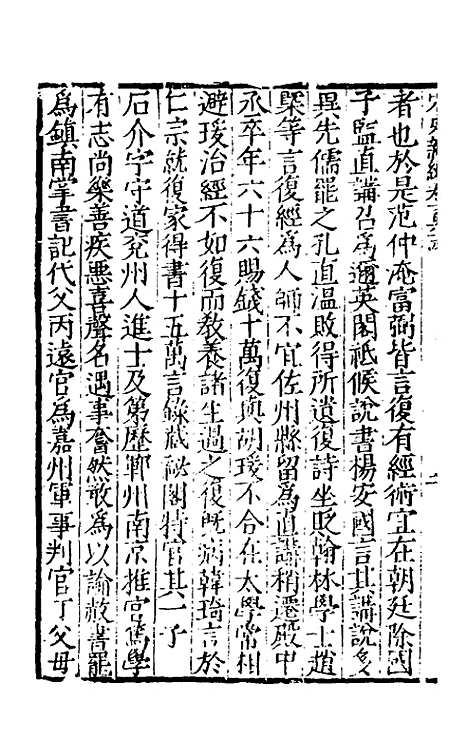 者也於是范仲淹富弼皆言復有經術宜在朝廷除國
子監直講召爲邇英閣祗候說書楊安國言其講說多
異先儒罷之孔直温敗得所遺復詩坐貶翰林學士趙
槩等言復經爲人師不宜佐州縣留爲直講稍遷殿中
丞卒年六十六賜錢十萬復與胡瑗不合在太學常相
避瑗治經不如復而教養諸生過之復既病韓琦言於
仁宗就復家得書十五萬言錄藏祕閣特官其一子
石介字守道兖州人進士及第歷鄆州南京推官篤學
有志尚樂善疾惡喜聲名遇事奮然敢爲以論赦書罷
爲鎮南掌書記代父丙遠官爲嘉州軍事判官丁父母